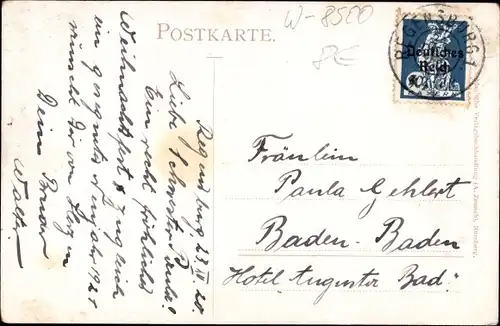 W-8500
POSTKARTE.
PE
REGENSBURG 1
Deutsches
Reich
Regensburg, 23.XII.20.
Liebe Schwester Paula!
Ein recht fröhliches
Weihnachtsfest & zugleich
ein gesegnetes Neujahr 1921
wünscht dir von Herzen
Dein Bruder
Walter.
Fräulein
Paula Gehlert
Baden-Baden
Hotel „Augusta Bad"